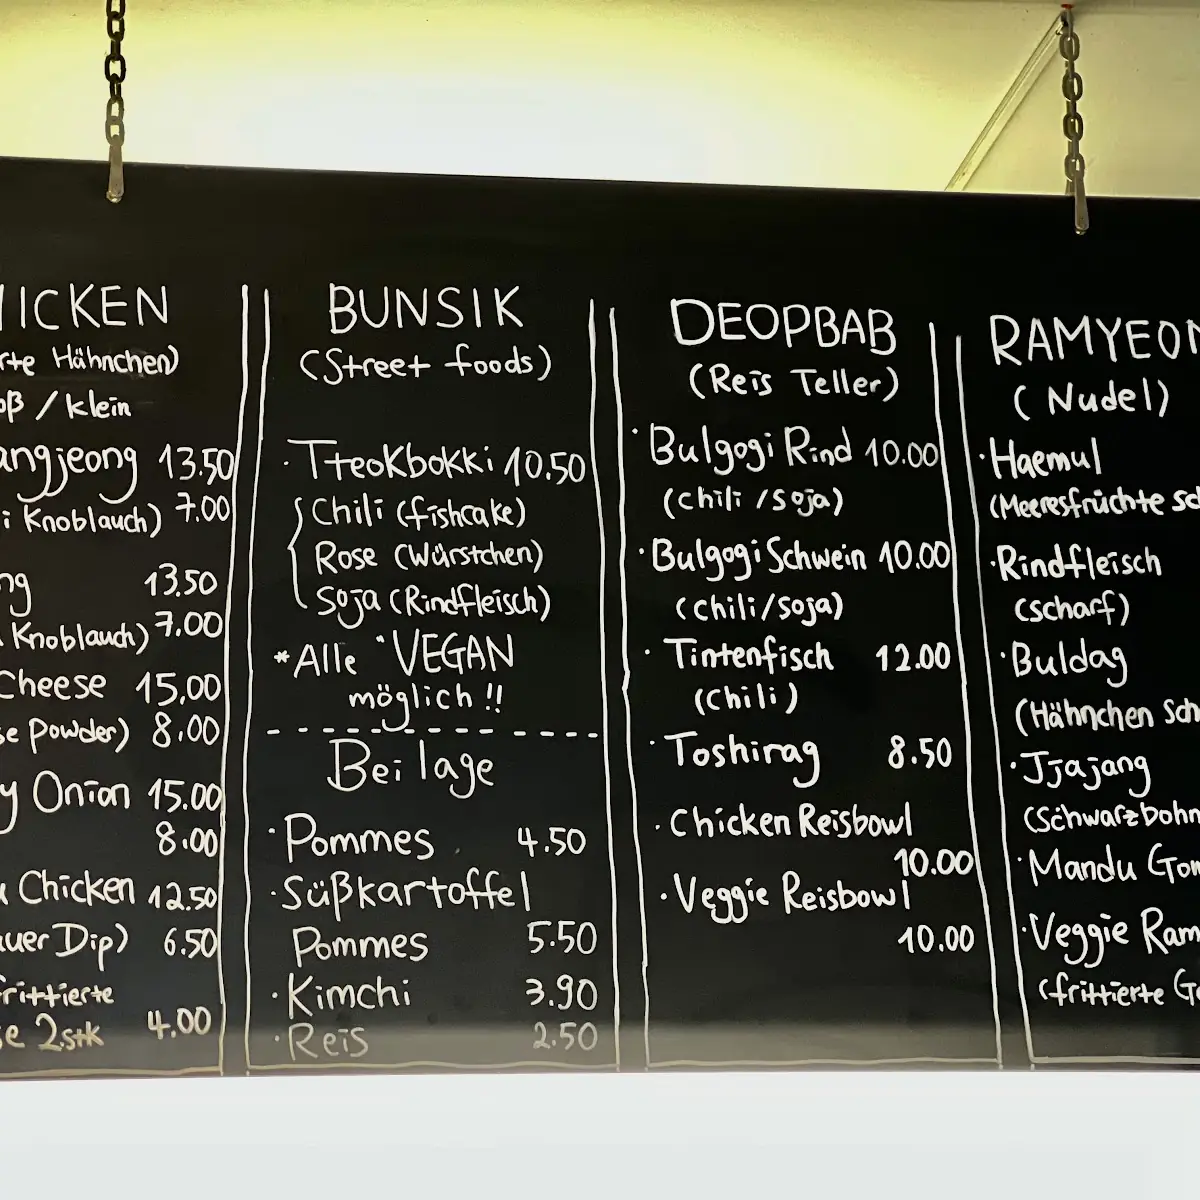 HICKEN
rte Hähnchen)
oß / klein
angjeong 13.50
i Knoblauch) 7.00
ng 13.50
Knoblauch) 7.00
Cheese 15.00
se Powder) 8.00
y Onion 15.00
8.00
Chicken 12.50
auer Dip) 6.50
frittierte
e 2.stk 4.00
BUNSIK
(Street foods)
· Tteokbokki 10.50
Chili (fishcake)
Rose (Würstchen)
Soja (Rindfleisch)
*Alle "VEGAN
möglich !!
Beilage
· Pommes 4.50
· Süßkartoffel
Pommes 5.50
· Kimchi 3.90
· Reis 2.50
DEOPBAB
(Reis Teller)
· Bulgogi Rind 10.00
(Chili /Soja)
· Bulgogi Schwein 10.00
(Chili/Soja)
· Tintenfisch 12.00
(Chili)
· Toshirag 8.50
· Chicken Reisbowl
10.00
· Veggie Reisbowl
10.00
RAMYEON
(Nudel)
· Haemul
(Meeresfrüchte sc
· Rindfleisch
(scharf)
· Buldag
(Hähnchen Sch
· Jjajang
(Schwarzbohn
· Mandu Gom
· Veggie Ram
(frittierte Ge